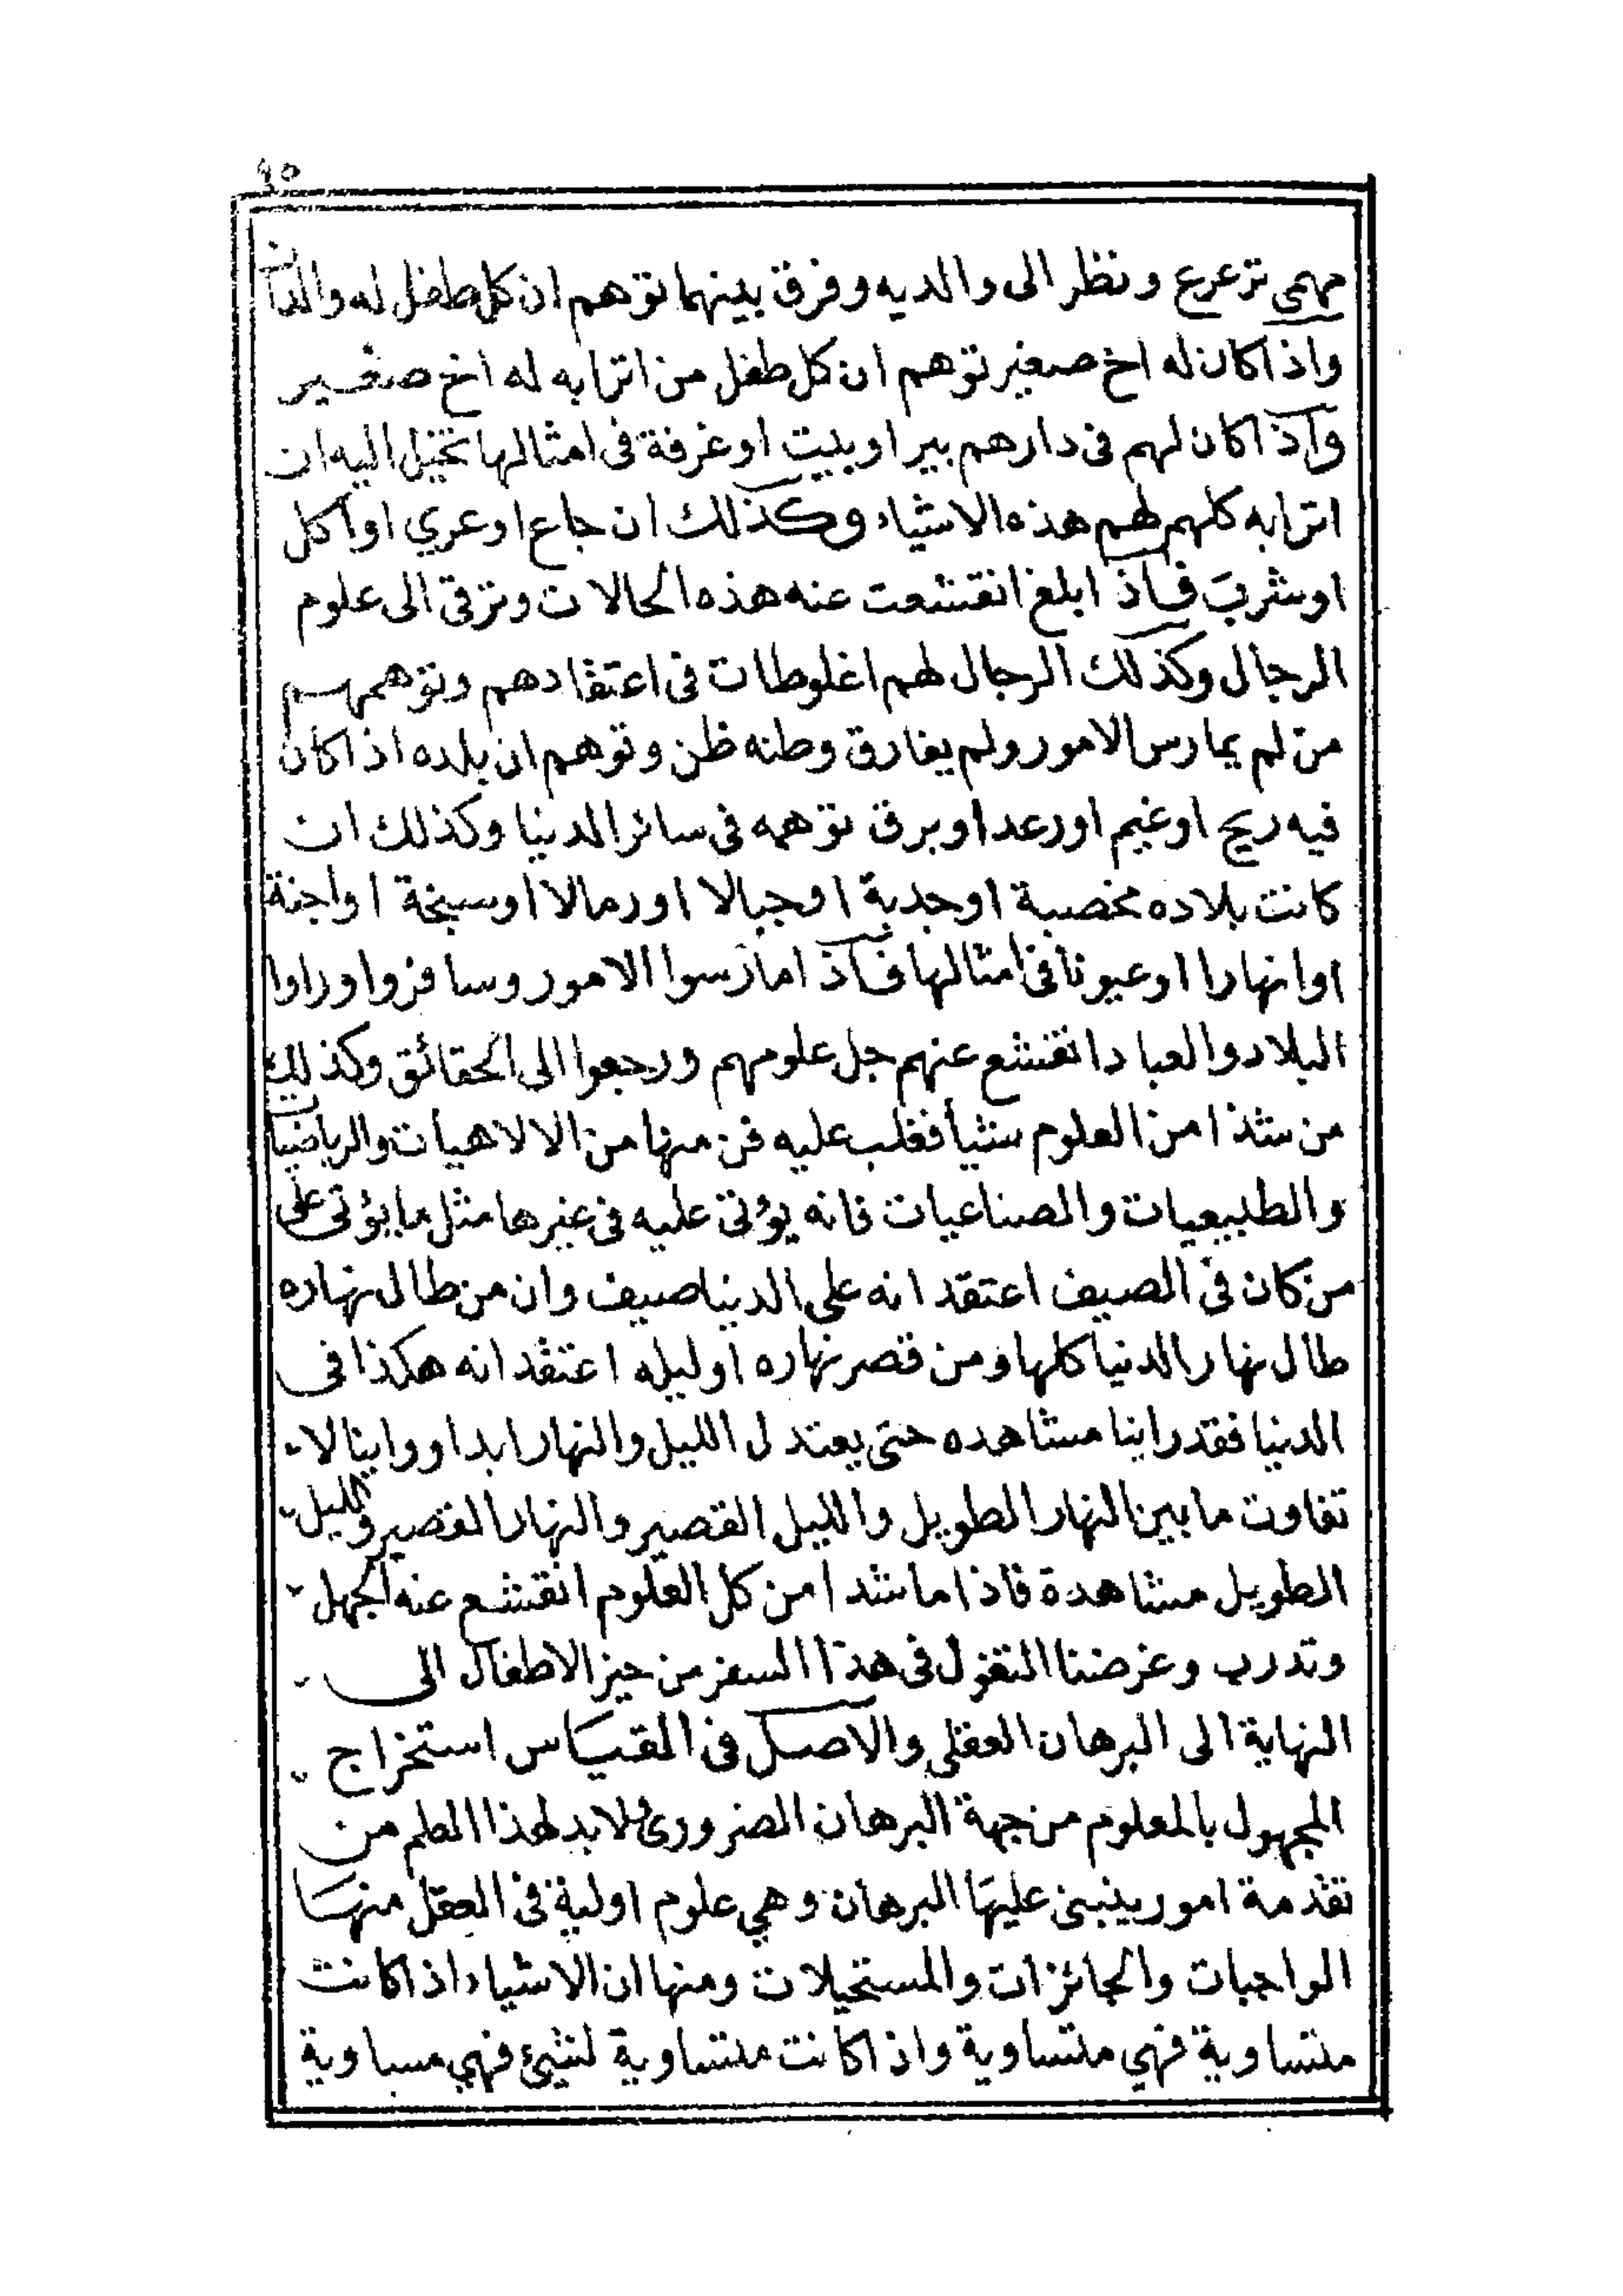 ٩٥
مهمى ترعرع ونظر الى والديه وفرق بينهما توهم ان كل طفل له والدان
واذا كان له اخ صغير توهم ان كل طفل من اترابه له اخ صغير
واذا كان لهم فى دارهم بير او بيت او غرفة فى امثالها تخيل اليه ان
اترابه كلهم لهم هذه الاشياء وكذلك ان جاع او عري او اكل
او شرب فاذا بلغ انقشعت عنه هذه الحالات وترقى الى علوم
الرجال وكذلك الرجال لهم اغلوطات فى اعتقادهم وتوهمهم
من لم يمارس الامور ولم يفارق وطنه ظن وتوهم ان بلده اذا كان
فيه ريح او غيم او رعد او برق توهمه فى سائر الدنيا وكذلك ان
كانت بلاده مخصبة او جدبة او جبالا او رمالا او سبخة او اجنة
او انهارا او عيونا فى امثالها فاذا مارسوا الامور وسافروا وراوا
البلاد والعباد انقشع عنهم جل علومهم ورجعوا الى الحقائق وكذلك
من شذا من العلوم شيأ فغلب عليه فن منها من الالاهيات والرياضيات
والطبيعيات والصناعيات فانه يؤتى عليه فى غيرها مثل ما يؤتى على
من كان فى الصيف اعتقد انه على الدنيا صيف وان من طال نهاره
طال نهار الدنيا كلها ومن قصر نهاره او ليله اعتقد انه هكذا فى
الدنيا فقد راينا مشاهده حتى يعتدل الليل والنهار ابدا وراينالا
تفاوت ما بين النهار الطويل والليل القصير والنهار القصير والليل
الطويل مشاهدة فاذا ما شدا من كل العلوم انقشع عنه الجهل
وتدرب وغرضنا النقول فى هذا السفر من حيز الاطفال الى
النهاية الى البرهان العقلي والاصل فى القياس استخراج
المجهول بالمعلوم من جهة البرهان الضرورى ولابد لهذا العلم من
تقدمة امور ينبنى عليها البرهان وهي علوم اولية فى العقل منها
الواجبات والجائزات والمستحيلات ومنها ان الاشياء اذا كانت
متساوية فهي متساوية واذا كانت متساوية لشيئ فهي مساوية